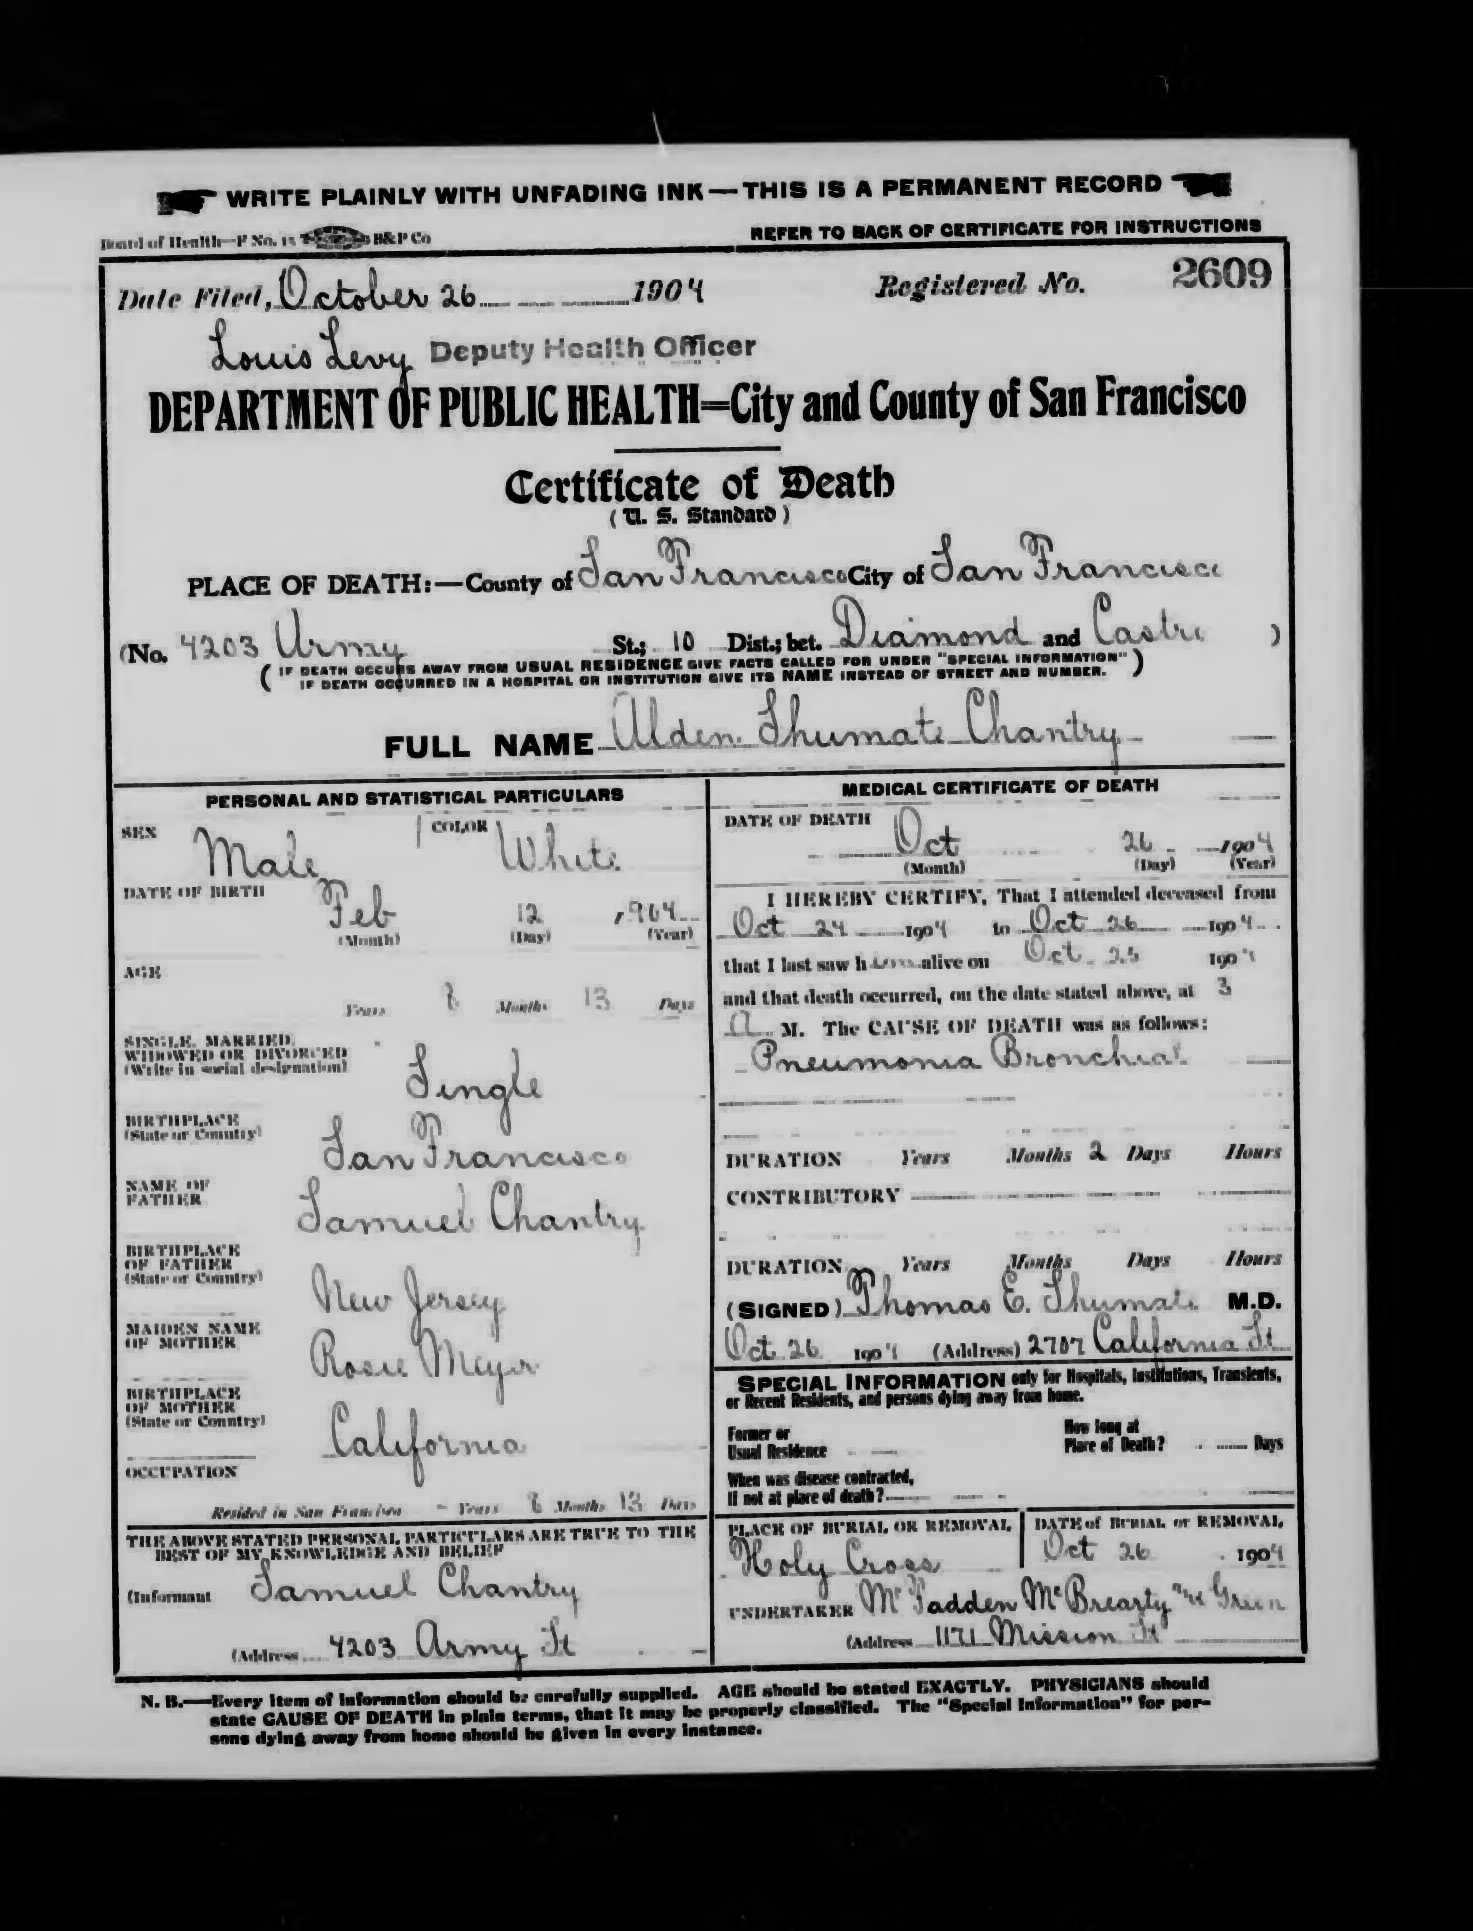 WRITE PLAINLY WITH UNFADING INK — THIS IS A PERMANENT RECORD
Board of Health—F No. 15 B&P Co REFER TO BACK OF CERTIFICATE FOR INSTRUCTIONS
Date Filed, October 26 1904 Registered No. 2609
Louis Levy Deputy Health Officer
DEPARTMENT OF PUBLIC HEALTH=City and County of San Francisco
Certificate of Death
(U. S. Standard)
PLACE OF DEATH:—County of San Francisco City of San Francisco
(No. 4203 Army St.; 10 Dist.; bet. Diamond and Castro )
( IF DEATH OCCURS AWAY FROM USUAL RESIDENCE GIVE FACTS CALLED FOR UNDER "SPECIAL INFORMATION" )
IF DEATH OCCURRED IN A HOSPITAL OR INSTITUTION GIVE ITS NAME INSTEAD OF STREET AND NUMBER.
FULL NAME Alden Shumate Chantry
PERSONAL AND STATISTICAL PARTICULARS
SEX Male COLOR White
DATE OF BIRTH Feb 12 1904
(Month) (Day) (Year)
AGE
Years 8 Months 13 Days
SINGLE, MARRIED,
WIDOWED OR DIVORCED
(Write in social designation) Single
BIRTHPLACE
(State or Country) San Francisco
NAME OF
FATHER Samuel Chantry
BIRTHPLACE
OF FATHER
(State or Country) New Jersey
MAIDEN NAME
OF MOTHER Rosie Meyer
BIRTHPLACE
OF MOTHER
(State or Country) California
OCCUPATION
Resided in San Francisco - Years 8 Months 13 Days
THE ABOVE STATED PERSONAL PARTICULARS ARE TRUE TO THE
BEST OF MY KNOWLEDGE AND BELIEF
(Informant Samuel Chantry
(Address 4203 Army St
MEDICAL CERTIFICATE OF DEATH
DATE OF DEATH Oct 26 1904
(Month) (Day) (Year)
I HEREBY CERTIFY, That I attended deceased from
Oct 24 1904 to Oct 26 1904
that I last saw him alive on Oct 25 1904
and that death occurred, on the date stated above, at 3
A M. The CAUSE OF DEATH was as follows:
Pneumonia Bronchial
DURATION Years Months 2 Days Hours
CONTRIBUTORY
DURATION Years Months Days Hours
(SIGNED) Thomas E. Shumate M.D.
Oct 26 1904 (Address) 2707 California St
SPECIAL INFORMATION only for Hospitals, Institutions, Transients,
or Recent Residents, and persons dying away from home.
Former or How long at
Usual Residence Place of Death? Days
When was disease contracted,
If not at place of death?
PLACE OF BURIAL OR REMOVAL DATE of BURIAL or REMOVAL
Holy Cross Oct 26 1904
UNDERTAKER McFadden McBrearty and Green
(Address 1171 Mission St
N. B.—Every item of information should be carefully supplied. AGE should be stated EXACTLY. PHYSICIANS should
state CAUSE OF DEATH in plain terms, that it may be properly classified. The "Special Information" for per-
sons dying away from home should be given in every instance.